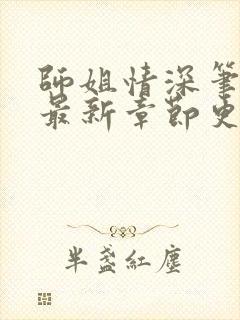 師姐情深筆
最新章節史
半盏紅塵